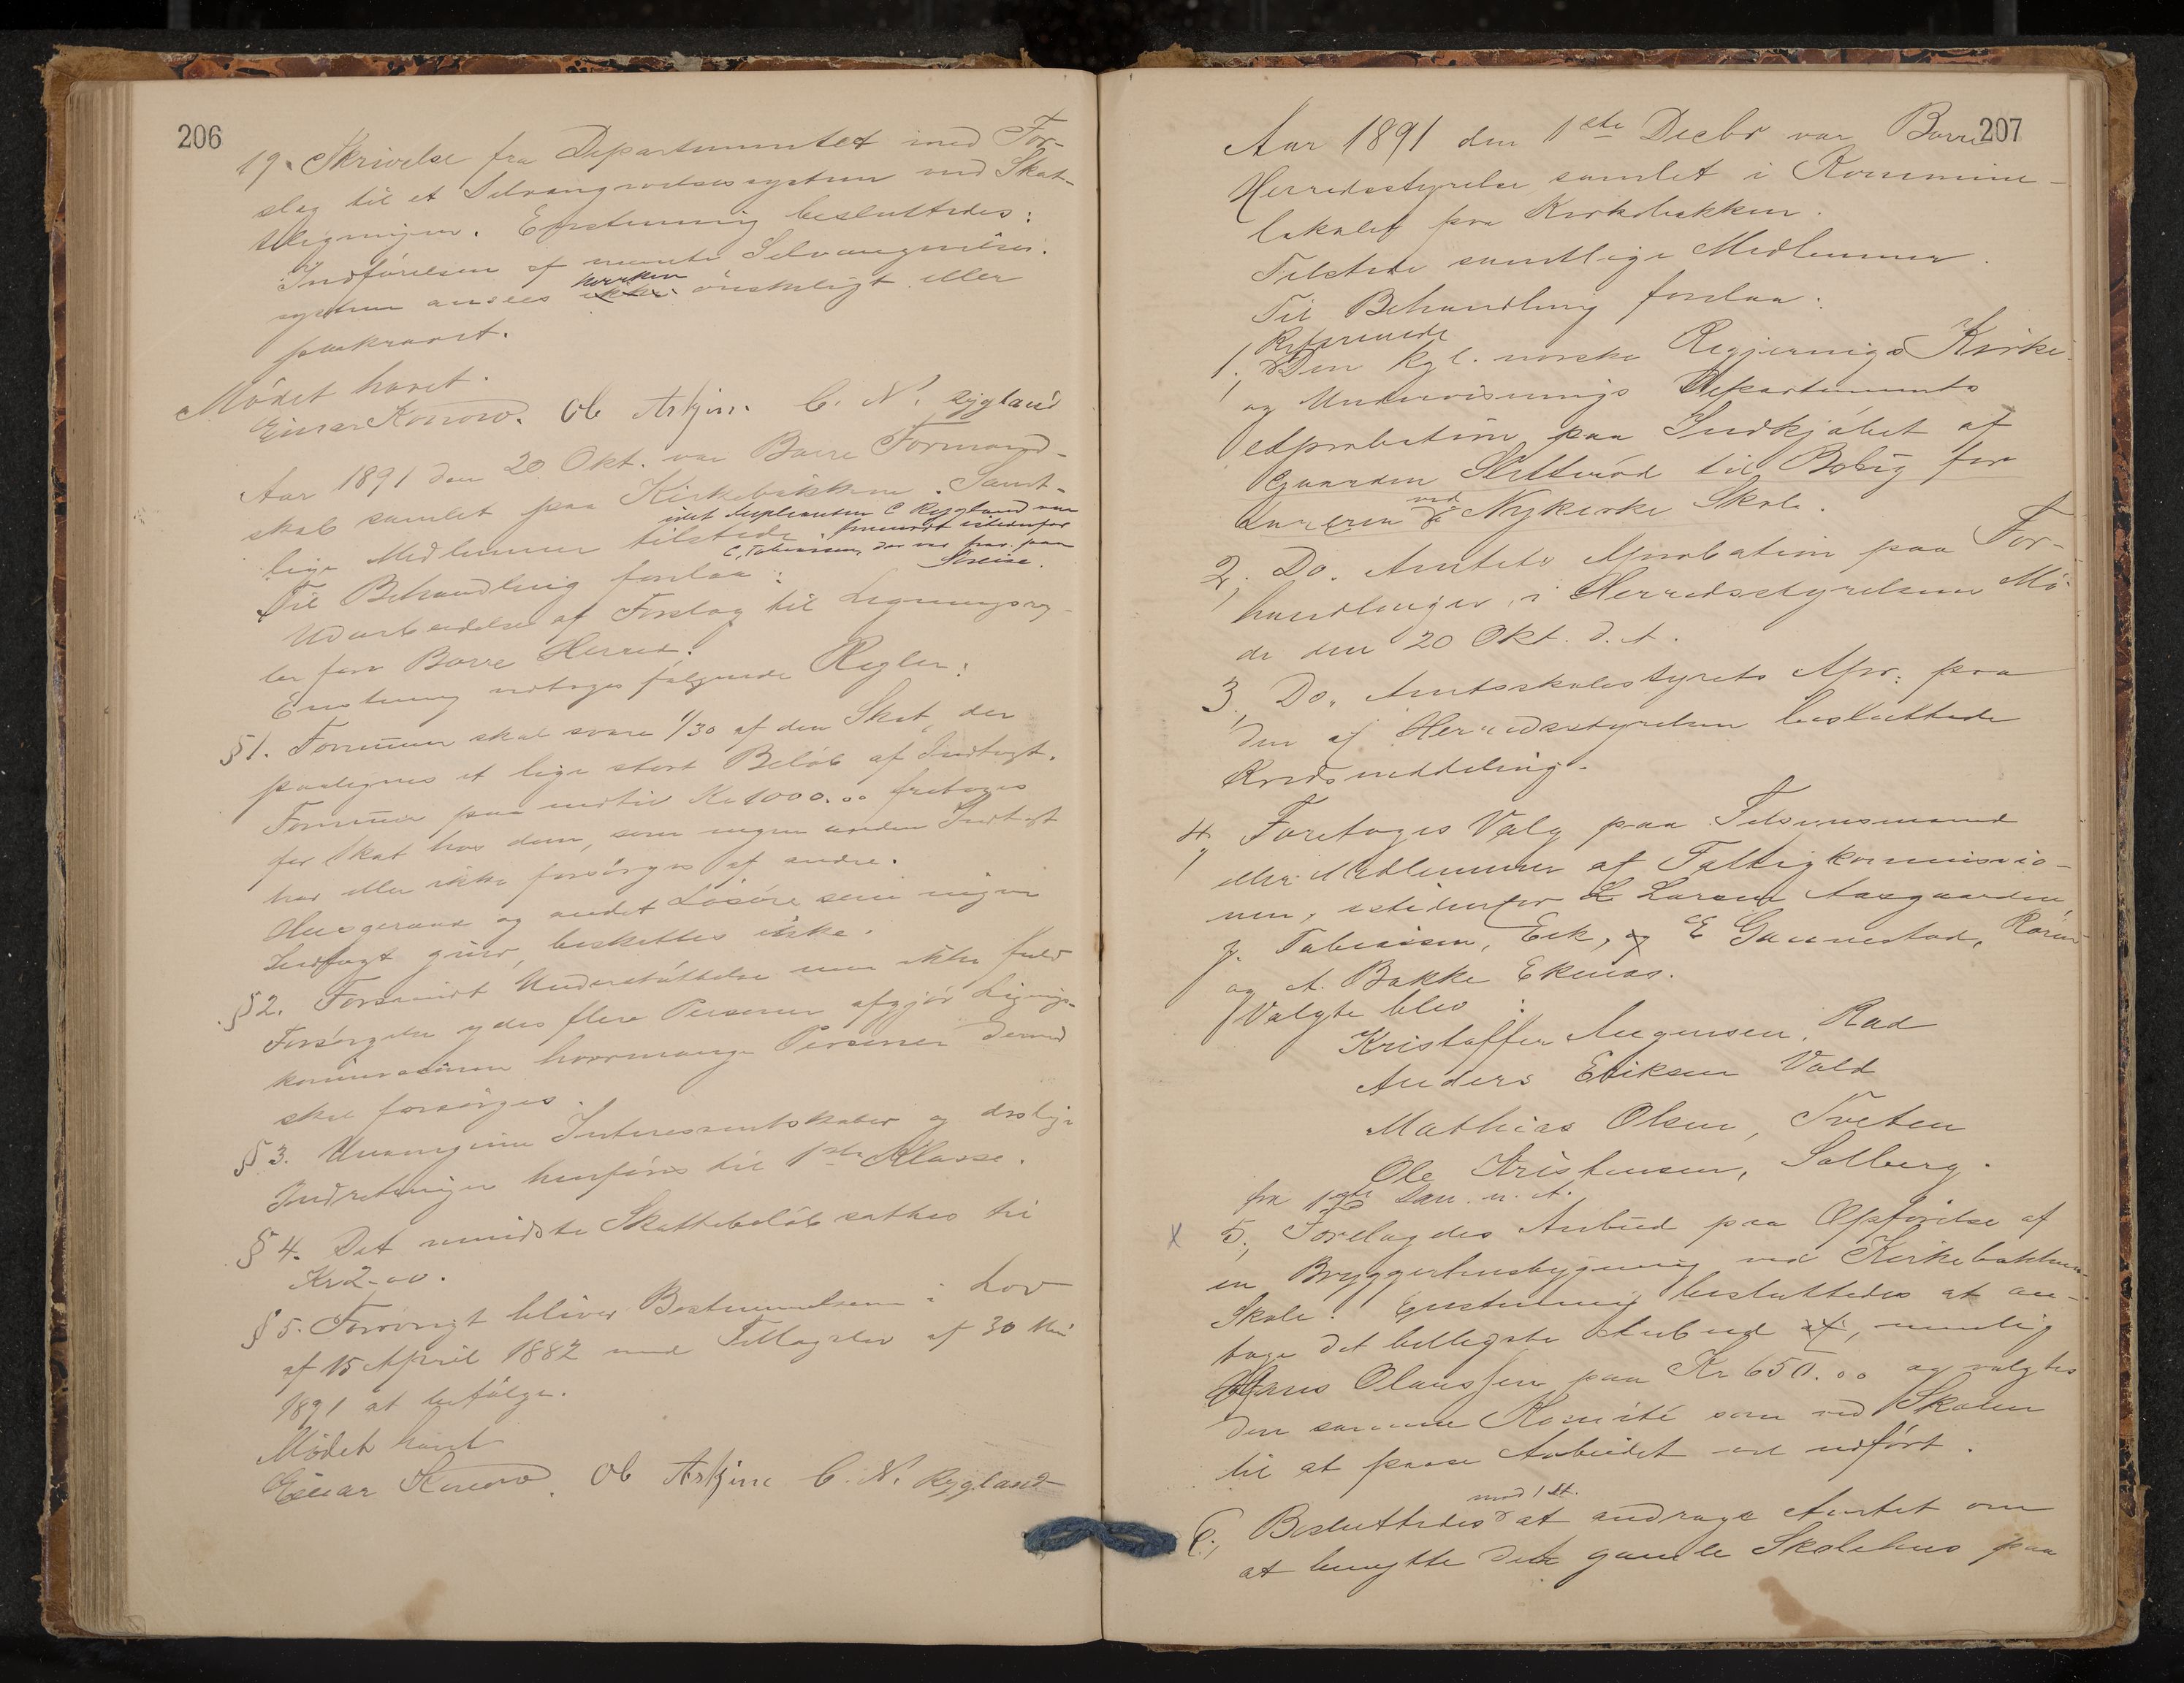 206
19. Skrivelse fra Departementet med For-
slag til et Selvangivelsessystem ved Skat-
ligningen. Enstemmig besluttedes:
Indførelsen af nævnte Selvangivelses-
system ansees hverken ikke ønskeligt eller
paakrævet.
Mødet hævet.
Einar Konow. Ob Askjem. C. N. Rygland
Aar 1891 den 20 Okt. var Borre Formand-
skab samlet paa Kirkebakken. Samt-
lige Medlemmer tilstede, idet Supleanten C Rygland var
fremmødt istedenfor
C. Tobiassen, der var frav. paa
Reise.
Til Behandling forelaa:
Udarbeidelse af Forslag til Ligningsreg-
ler for Borre Herred.
Enstemmig vedtoges følgende Regler:
§ 1. Formuen skal svare 1/30 af den Skat, der
paalignes et lige stort Beløb af Indtægt.
Formue paa indtil Kr 1000.00 fritages
for Skat hos dem, som ingen anden Indtægt
har eller ikke forsørges af andre.
Husgeraad og andet Løsøre som ingen
Indtægt giver, beskattes ikke.
§ 2. Forsaavidt Understøttelse men ikke fuld
Forsørgelse ydes flere Personer afgjør Lignings-
kommissionen hvormange Personer derved
skal forsørges.
§ 3. Unavngivne Interessentskaber og deslige
Indretninger henføres til 1ste Klasse.
§ 4. Det mindste Skattebeløb sættes til
Kr 2.00.
§ 5. Forøvrigt bliver Bestemmelserne i Lov
af 15 April 1882 med Tillægslov af 30 Mai
1891 at befølge.
Mødet hævet
Einar Konow. Ob Askjem C. N. Rygland
207
Aar 1891 den 1ste Decbr var Borre
Herredsstyrelse samlet i Kommune-
lokalet paa Kirkebakken.
Tilstede samtlige Medlemmer.
Til Behandling forelaa:
Refereredes
1. Den kgl. norske Regjerings Kirke-
og Undervisnings Departements
Approbation paa Indkjøbet af
Gaarden Sletterød til Bolig for
Læreren ved Nykirke Skole.
2. Do. Amtets Approbation paa For-
handlinger i Herredsstyrelsens Mø-
de den 20 Okt. d. A.
3. Do. Amtsskolestyrets Apr. paa
den af Herredsstyrelsen besluttede
Kredsinddeling.
4. Foretoges Valg paa Tilsynsmænd
eller Medlemmer af Fattigkommissio-
nen, istedenfor L Larsen Aasgaarden,
J. Tobiassen, Eik, og E Gannestad, Rørum
og A. Bakke Ekenæs.
Valgte blev:
Kristoffer Mugensen, Rød
Anders Eriksen Vold
Mathias Olsen, Tveten
Ole Kristensen, Solberg.
fra 1ste Jan. n. A.
x 5. Forelagdes Anbud paa Opførelse af
en Bryggerhusbygning ved Kirkebakken
Skole. Enstemmig besluttedes at an-
tage det billigste Anbud af, nemlig
Hans Olaussen paa Kr 650.00 og valgtes
den samme Komité som ved Skolen
til at paase Arbeidet vel udført.
6. Besluttedes mod 1 St. at andrage Amtet om
at benytte det gamle Skolehus paa